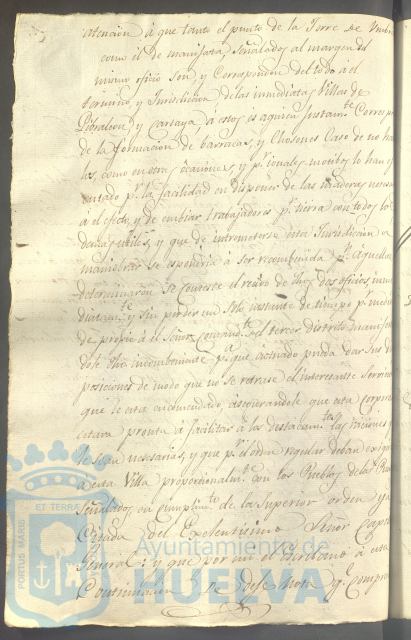 atencion á que tanto el punto de la Torre de Umbria
como el de manifata señalados al margen del
mismo oficio son y Corresponden del todo á el
termino y Jurisdiccion de las inmediatas Villas de
Gibraleon y Cartaya á estos es a quien Justam.te Corresp
de la formacion de barracas, y Chosones Caso de no ha
las, como en otras ocaciones, y p.r iguales motivos lo han
p.r la facilidad en disponer de las maderas neces
á el efecto, y de embiar trabajadores p.r tierra con todos los
demas utiles, y que de intrometerse esta Jurisdiccion a
maniobrar se espondria á ser reconbenida p.r aquellas
determinaron se conteste el recivo de dhos dos oficios inme
diatam.te y sin perder un solo instante de tiempo p.r medio
de propio á el Señor Comand.te del tercer distrito manifes
dole dho incombeniente p.a que actuado pueda dar sus dis
posiciones de modo que no se retrase el interesante Servicio
que le esta encomendado, asegurandole que esta Corpora
estara pronta á facilitar á los destacam.tos las raciones q.
le sean nesesarias, y que p.r el orden regular deban exigir
a esta Villa proporcionalm.te con los Pueblos de las
señalados en cumplim.to de la Superior orden ya
Citada del Excelentisimo Señor Capitan
General: y que por mi el Escribano á esta
Continuacion se dese nota q.e compru
ET TERRA
PORTUS MARIS
Ayuntamiento de
HUELVA